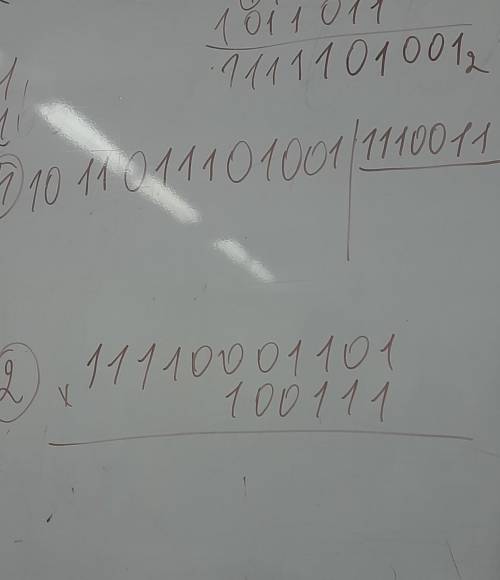 1011011
1111101001₂
1
1
① 1011011101001 | 1110011
② 11110001101
x 100111